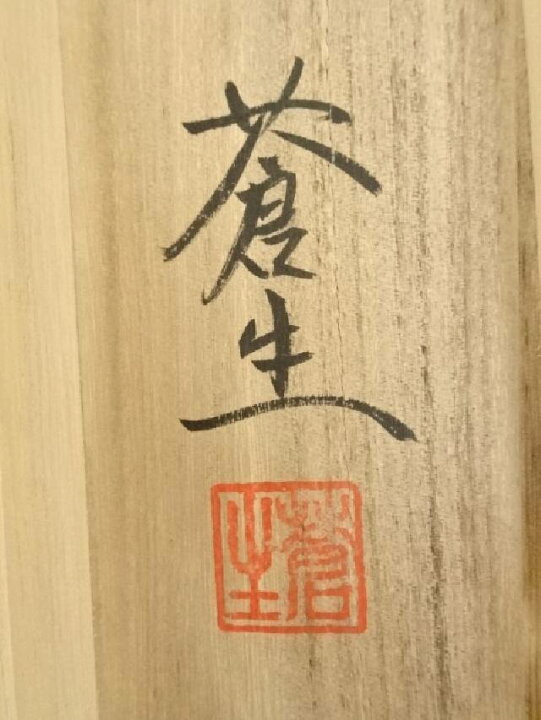 蒼生
蒼生